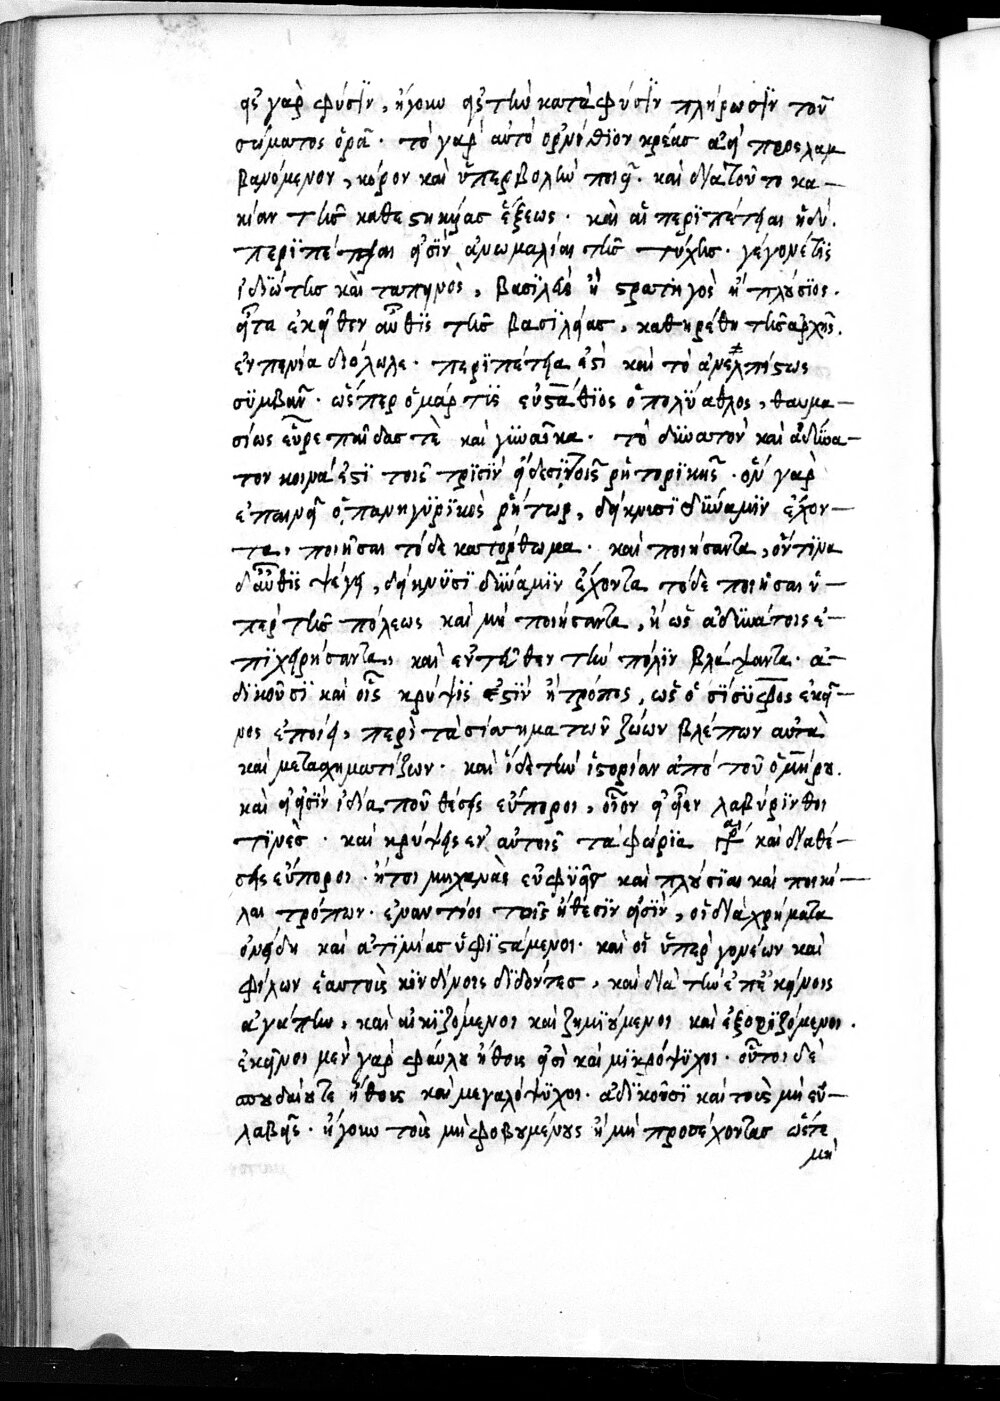 εἰς γὰρ φύσιν, ἤγουν εἰς τὴν κατὰ φύσιν πλήρωσιν τοῦ
σώματος ὁρᾶ. τὸ γὰρ αὐτὸ ὀρνίθιον κρέας ἀεὶ προσλαμ
βανόμενον, κόρον καὶ ὑπερβολὴν ποιεῖ. καὶ διὰ τοῦτο κα-
κίαν τῆς καθεστηκυίας ἕξεως. καὶ αἱ περιπέτειαι ἡδύ.
περιπέτειαι εἰσὶν ἀνωμαλίαι τῆς τύχης. γέγονέ τις
ἰδιώτης καὶ ταπεινὸς, βασιλεὺς ἢ στρατηγὸς ἢ πλούσιος.
εἶτα ἐκεῖθεν αὖθις τῆς βασιλείας, καθῃρέθη τῆς ἀρχῆς.
ἐν πενία διόλωλε. περιπέτεια ἐστὶ καὶ τὸ ἀνελπίστως
συμβὰν. ὥσπερ ὁ μάρτις εὐστάθιος ὁ πολύαθλος, θαυμα-
σίως εὗρε παῖδας τὲ καὶ γυναῖκα. τὸ δυνατὸν καὶ ἀδύνα-
τον κοινά ἐστι τοῖς τρισὶν εἴδεσιν τοῖς ῥητορικῆς. ὃν γὰρ
ἐπαινεῖ ὁ πανηγυρικὸς ῥήτωρ, δείκνυσι δύναμιν ἔχον-
τα, ποιῆσαι τόδε κατόρθωμα. καὶ ποιήσαντα, ὅντινα
δ' αὖθις ψέγει, δείκνυσι δύναμιν ἔχοντα τόδε ποιῆσαι ὑ-
πὲρ τῆς πόλεως καὶ μὴ ποιήσαντα, ἢ ὡς ἀδυνάτοις ἐ-
πιχειρήσαντα, καὶ ἐντεῦθεν τὴν πόλιν βλάψαντα. ἀ-
δικοῦσι καὶ οἷς κρύψις ἐστὶν ἢ τρόπος, ὡς ὁ σίσυφος ἐκεῖ-
νος ἐποίει, περὶ τὰ σίνη τημα τῶν ζώων βλέπων αὐτὰ
καὶ μετασχηματίζων. καὶ ἴδε τὴν ἱστορίαν ἀπὸ τοῦ ὁμήρου.
καὶ εἰ εἰσὶν ἰδία που θέσεις εὔποροι, οἷον εἰ εἶεν λαβύρινθοι
τινὲς. καὶ κρύψεις ἐν αὐτοῖς τὰ φώρια καὶ διαθέ-
σεις εὔποροι. ἤτοι μηχαναὶ εὐφυεῖς καὶ πλούσιαι καὶ ποικί-
λαι τρόπων. ἐναντίοι τοῖς ἤθεσιν εἰσὶν, οἱ διὰ χρήματα
ὀνείδη καὶ ἀτιμίας ὑφιστάμενοι. καὶ οἱ ὑπὲρ γονέων καὶ
φίλων ἑαυτοὺς κινδύνοις διδόντες, καὶ διὰ τὴν ἐπ' ἐκείνοις
ἀγάπην, καὶ αἰκιζόμενοι καὶ ζημιούμενοι καὶ ἐξοριζόμενοι.
ἐκεῖνοι μὲν γὰρ φαύλου ἤθους εἰσὶ καὶ μικρόψυχοι. οὗτοι δὲ
σπουδαίου τε ἤθους καὶ μεγαλόψυχοι. ἀδικοῦσι καὶ τοὺς μὴ εὐ-
λαβεῖς. ἤγουν τοὺς μὴ φοβουμένους ἢ μὴ προσέχοντας ὥστε
μὴ